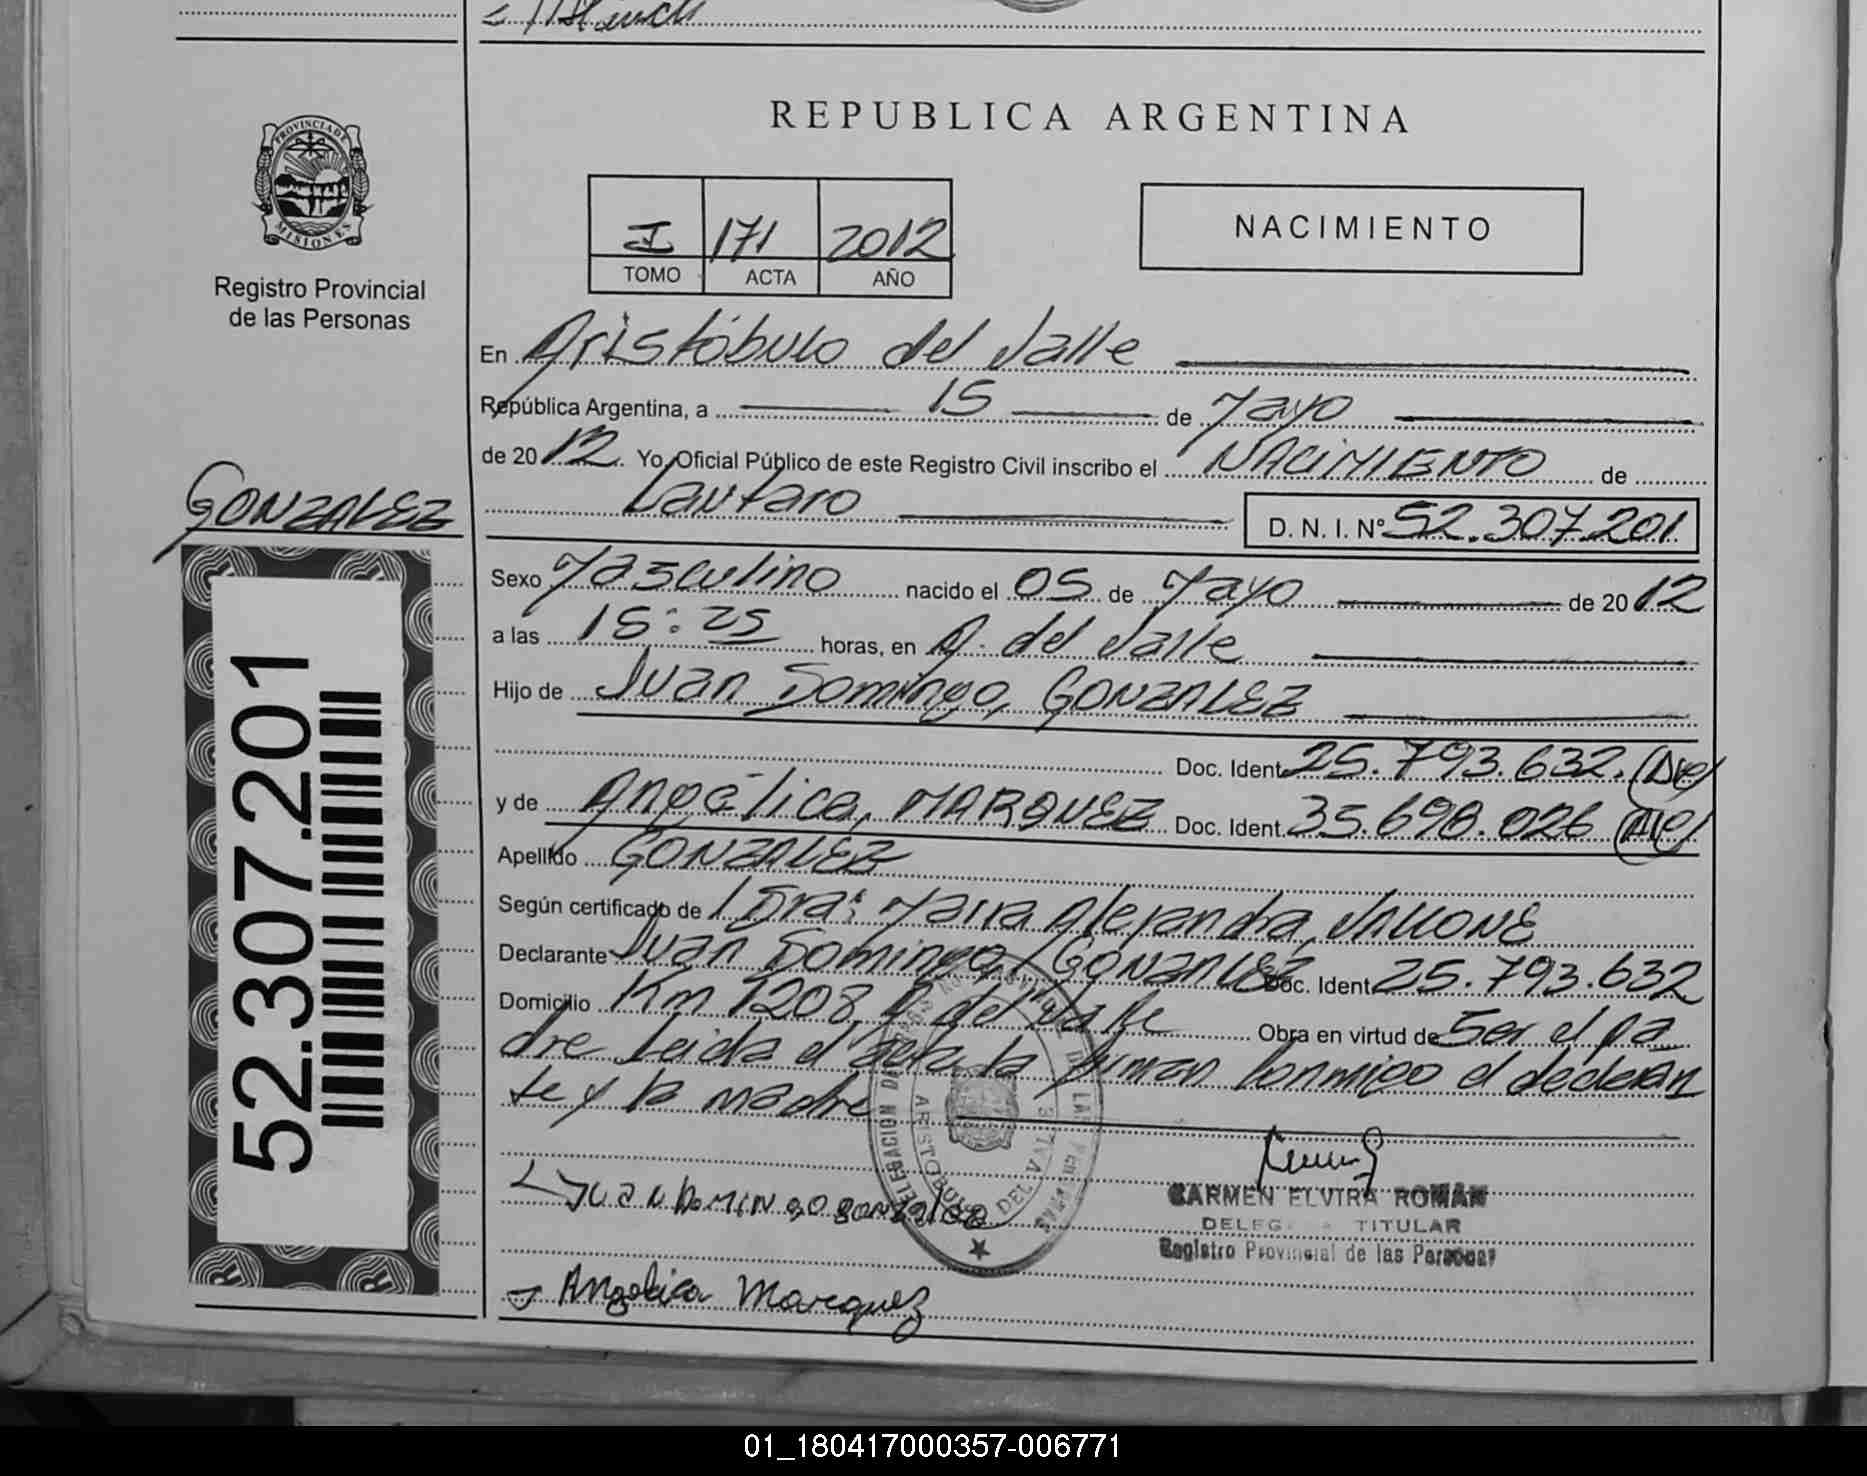 REPUBLICA ARGENTINA
PROVINCIA DE
MISIONES
Registro Provincial
de las Personas
I 171 2012
TOMO ACTA AÑO
NACIMIENTO
En Aristóbulo del Valle
República Argentina, a 15 de Mayo
de 2012 Yo, Oficial Público de este Registro Civil inscribo el NACIMIENTO de
GONZALEZ
Lautaro D. N. I. Nº 52.307.201
Sexo Masculino nacido el 05 de Mayo de 2012
a las 15:25 horas, en A. del Valle
Hijo de Juan Domingo, GONZALEZ
Doc. Ident. 25.793.632.
y de Angélica, MARQUEZ Doc. Ident. 35.698.026
Apellido GONZALEZ
Según certificado de Dra: María Alejandra, VALLONE
Declarante Juan Domingo, GONZALEZ Doc. Ident. 25.793.632
Domicilio Km 1208, A del Valle Obra en virtud de Ser el pa
dre Leida el acta la firman conmigo el declaran
te y la madre
52.307.201
DELEGACION DEL
DE LAS PERSONAS
ARISTOBULO DEL VALLE
JUAN DOMINGO GONZALEZ
CARMEN ELVIRA ROMAN
TITULAR
Registro Provincial de las Personas
Angelica Marquez
01_180417000357-006771